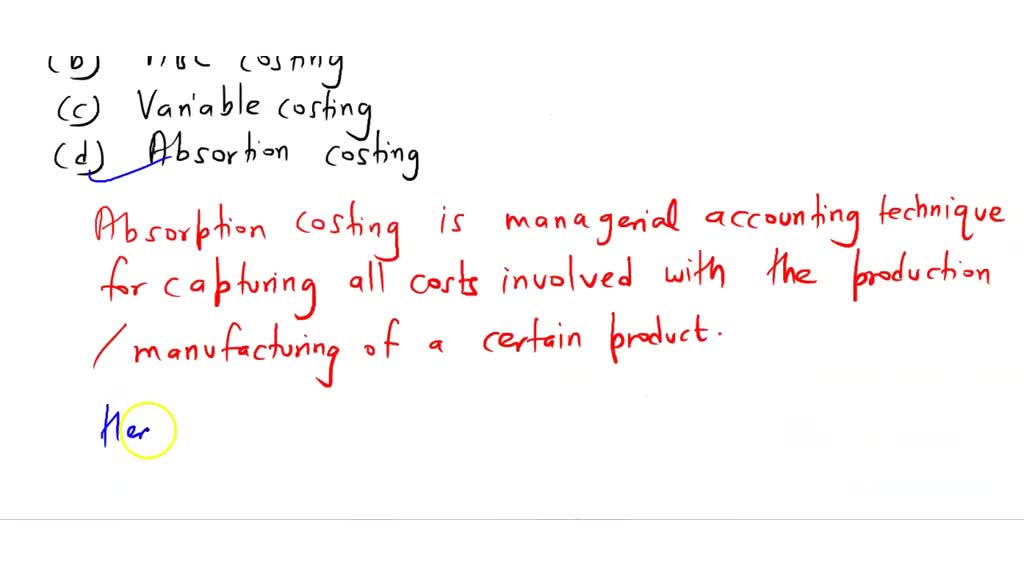 (b) costing
(c) Variable costing
(d) Absortion costing
Absorption costing is managerial accounting technique
for capturing all costs involved with the production
/manufacturing of a certain product.
Her